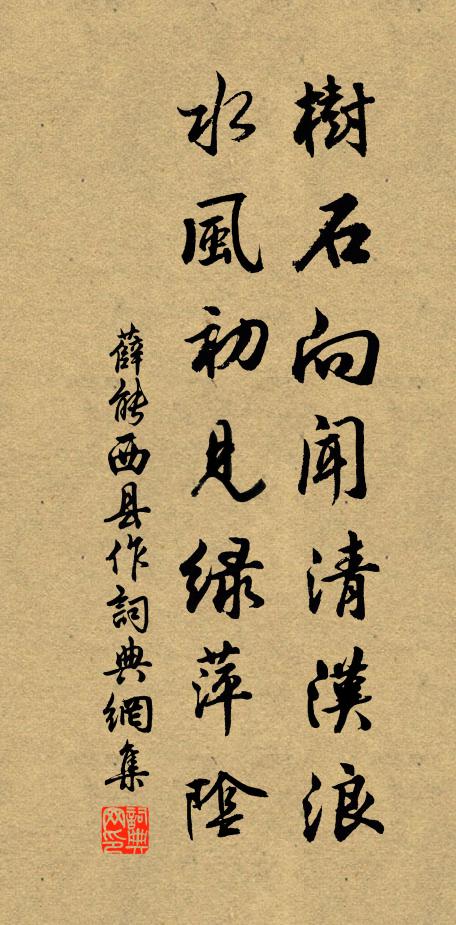 樹石向聞清漢浪
水風初見緑萍陰
薛能西县作詞典網集
詞典网印